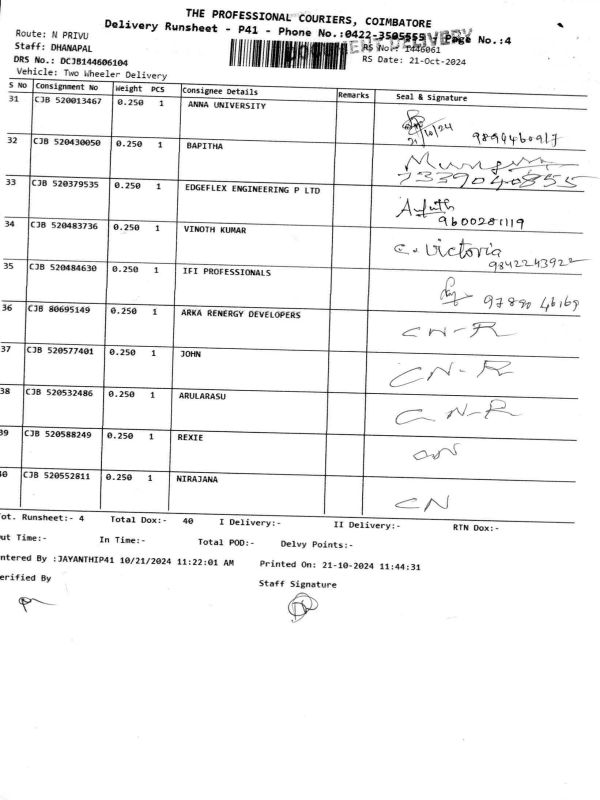 THE PROFESSIONAL COURIERS, COIMBATORE
Delivery Runsheet - P41 - Phone No.:0422-3505555 / Page No.:4
DOCUMENT DELIVERY
Route: N PRIVU
Staff: DHANAPAL
RS No.: 1446061
DRS No.: DCJB144606104
RS Date: 21-Oct-2024
Vehicle: Two Wheeler Delivery
S No Consignment No Weight PCS Consignee Details Remarks Seal & Signature
31 CJB 520013467 0.250 1 ANNA UNIVERSITY
21/10/24 9894460917
32 CJB 520430050 0.250 1 BAPITHA
7339040855
33 CJB 520379535 0.250 1 EDGEFLEX ENGINEERING P LTD
9600281119
34 CJB 520483736 0.250 1 VINOTH KUMAR C. Victoria
9842243922
35 CJB 520484630 0.250 1 IFI PROFESSIONALS
97890 46169
36 CJB 80695149 0.250 1 ARKA RENERGY DEVELOPERS CN-R
37 CJB 520577401 0.250 1 JOHN CN-R
38 CJB 520532486 0.250 1 ARULARASU CN-R
39 CJB 520588249 0.250 1 REXIE CN
40 CJB 520552811 0.250 1 NIRAJANA CN
ot. Runsheet:- 4 Total Dox:- 40 I Delivery:- II Delivery:- RTN Dox:-
ut Time:- In Time:- Total POD:- Delvy Points:-
ntered By :JAYANTHIP41 10/21/2024 11:22:01 AM Printed On: 21-10-2024 11:44:31
erified By Staff Signature